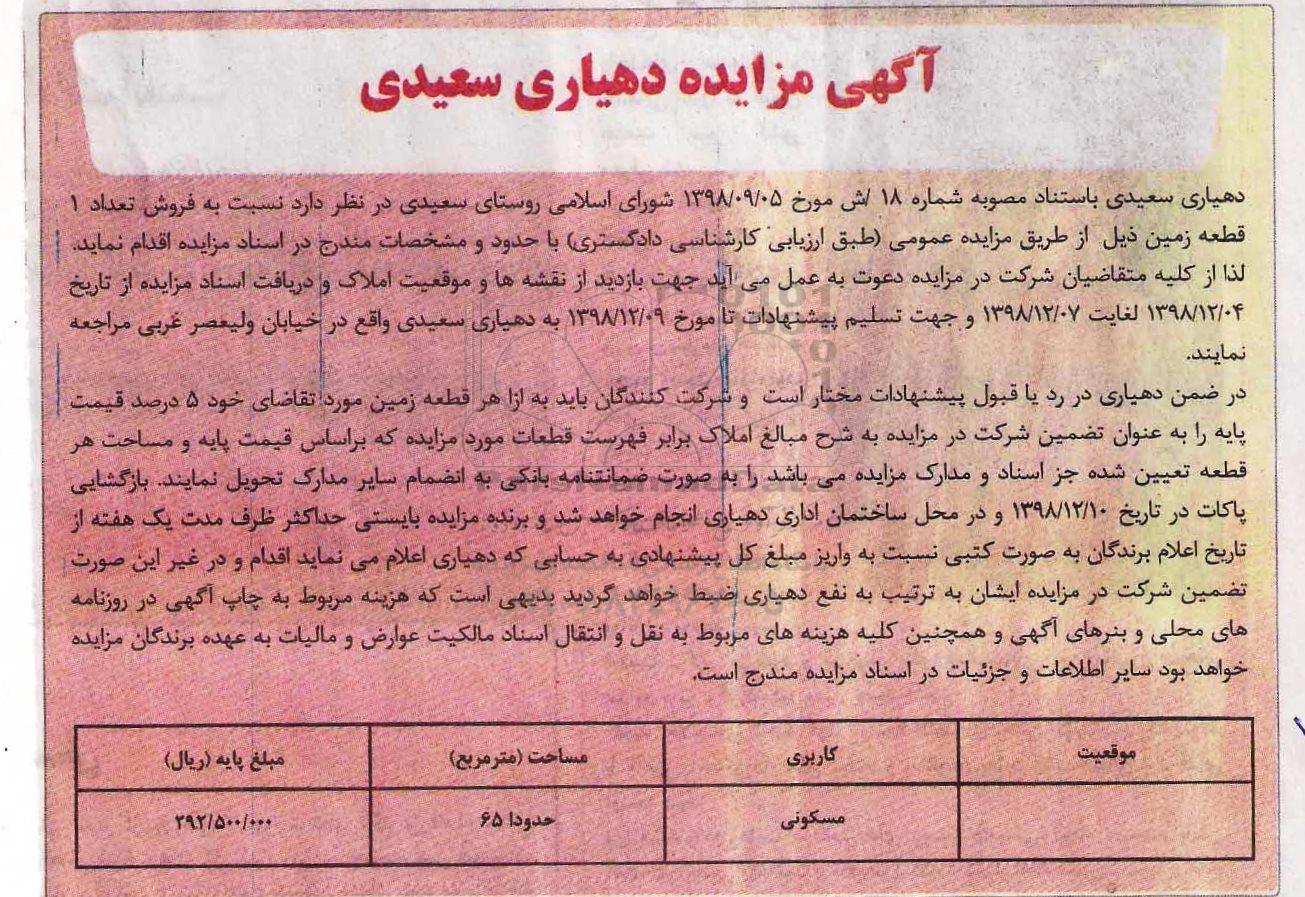 آگهی مزایده دهیاری سعیدی
دهیاری سعیدی باستناد مصوبه شماره ۱۸ /ش مورخ ۱۳۹۸/۰۹/۰۵ شورای اسلامی روستای سعیدی در نظر دارد نسبت به فروش تعداد ۱
قطعه زمین ذیل از طریق مزایده عمومی (طبق ارزیابی کارشناسی دادگستری) با حدود و مشخصات مندرج در اسناد مزایده اقدام نماید.
لذا از کلیه متقاضیان شرکت در مزایده دعوت به عمل می آید جهت بازدید از نقشه ها و موقعیت املاک و دریافت اسناد مزایده از تاریخ
۱۳۹۸/۱۲/۰۴ لغایت ۱۳۹۸/۱۲/۰۷ و جهت تسلیم پیشنهادات تا مورخ ۱۳۹۸/۱۲/۰۹ به دهیاری سعیدی واقع در خیابان ولیعصر غربی مراجعه
نمایند.
در ضمن دهیاری در رد یا قبول پیشنهادات مختار است و شرکت کنندگان باید به ازا هر قطعه زمین مورد تقاضای خود ۵ درصد قیمت
پایه را به عنوان تضمین شرکت در مزایده به شرح مبالغ املاک برابر فهرست قطعات مورد مزایده که براساس قیمت پایه و مساحت هر
قطعه تعیین شده جز اسناد و مدارک مزایده می باشد را به صورت ضمانتنامه بانکی به انضمام سایر مدارک تحویل نمایند. بازگشایی
پاکات در تاریخ ۱۳۹۸/۱۲/۱۰ و در محل ساختمان اداری دهیاری انجام خواهد شد و برنده مزایده بایستی حداکثر ظرف مدت یک هفته از
تاریخ اعلام برندگان به صورت کتبی نسبت به واریز مبلغ کل پیشنهادی به حسابی که دهیاری اعلام می نماید اقدام و در غیر این صورت
تضمین شرکت در مزایده ایشان به ترتیب به نفع دهیاری ضبط خواهد گردید بدیهی است که هزینه مربوط به چاپ آگهی در روزنامه
های محلی و بنرهای آگهی و همچنین کلیه هزینه های مربوط به نقل و انتقال اسناد مالکیت عوارض و مالیات به عهده برندگان مزایده
خواهد بود سایر اطلاعات و جزئیات در اسناد مزایده مندرج است.
موقعیت کاربری مساحت (مترمربع) مبلغ پایه (ریال)
مسکونی حدودا ۶۵ ۲۹۲/۵۰۰/۰۰۰